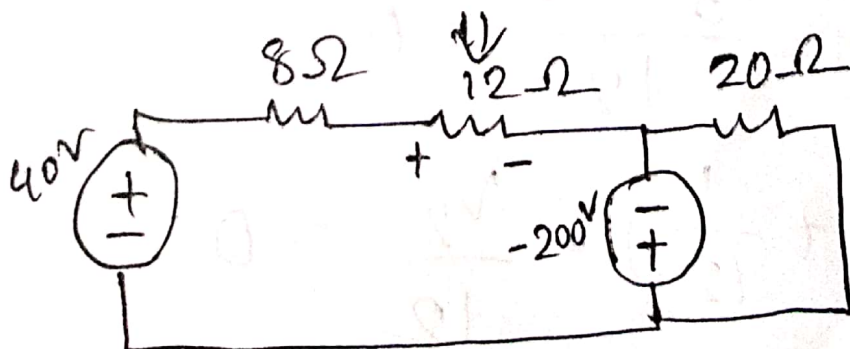 8Ω 12Ω 20Ω
40V + - + -
-200V - +